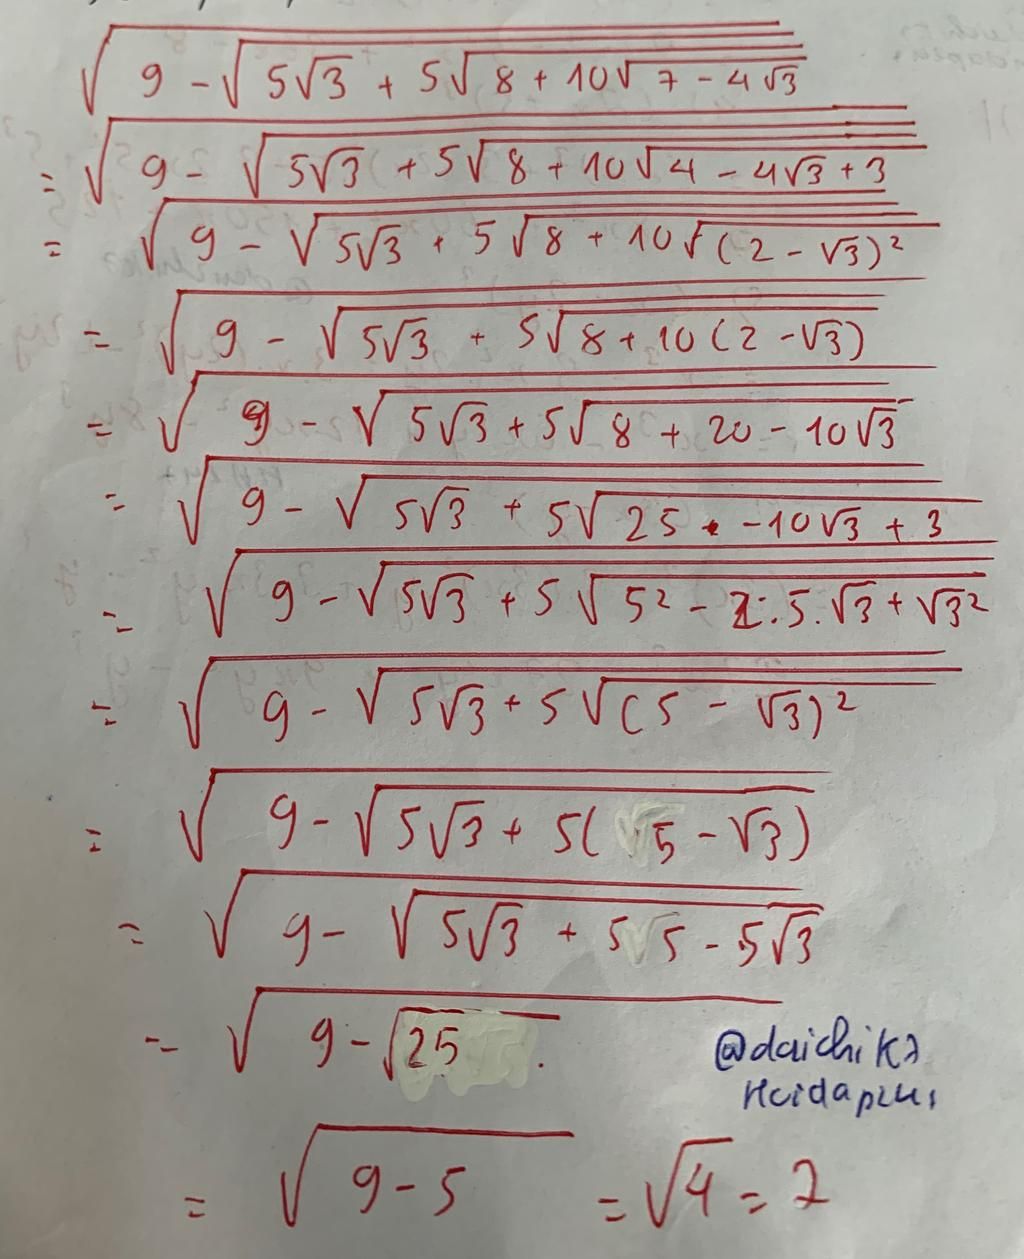 √(9 - √(5√3 + 5√(8 + 10√(7 - 4√3))))
= √(9 - √(5√3 + 5√(8 + 10√(4 - 4√3 + 3))))
= √(9 - √(5√3 + 5√(8 + 10√((2 - √3)²))))
= √(9 - √(5√3 + 5√(8 + 10(2 - √3))))
= √(9 - √(5√3 + 5√(8 + 20 - 10√3)))
= √(9 - √(5√3 + 5√(25 - 10√3 + 3)))
= √(9 - √(5√3 + 5√(5² - 2.5.√3 + √3²)))
= √(9 - √(5√3 + 5√((5 - √3)²)))
= √(9 - √(5√3 + 5(5 - √3)))
= √(9 - √(5√3 + 5 5 - 5√3))
= √(9 - √25)
@daichik7
= √(9 - 5) = √4 = 2